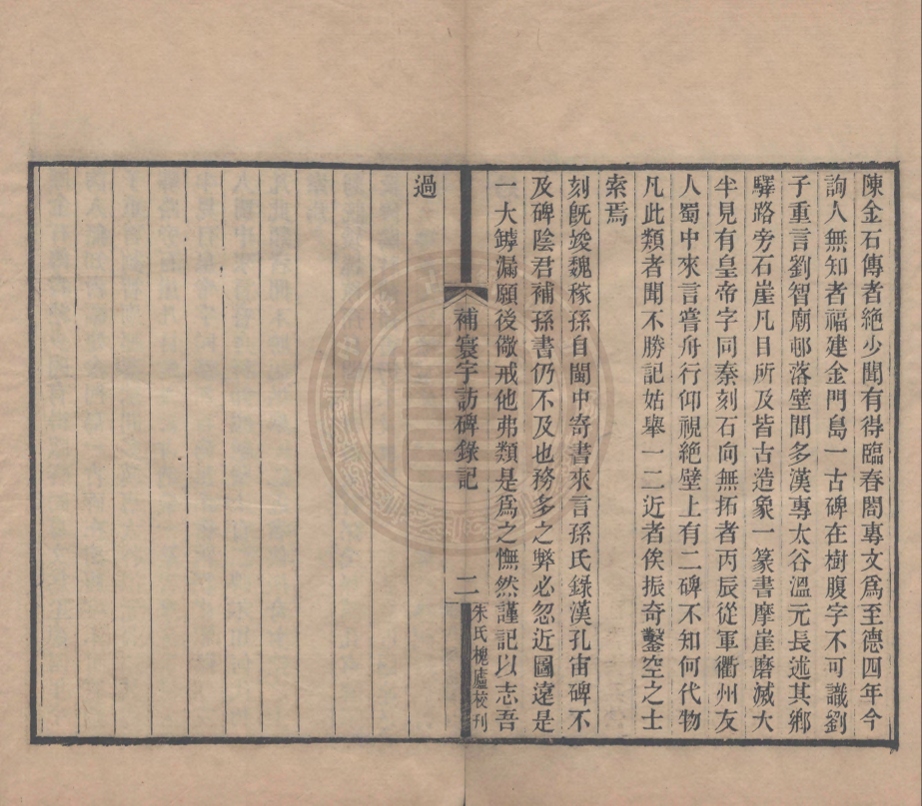 陳金石傳者絶少聞有得臨春閣專文爲至德四年今
詢人無知者福建金門島一古碑在樹腹字不可識劉
子重言劉智廟邨落壁間多漢專太谷溫元長述其鄉
驛路旁石崖凡目所及皆古造象一篆書摩崖磨滅大
半見有皇帝字同秦刻石向無拓者丙辰從軍衢州友
人蜀中來言嘗舟行仰視絶壁上有二碑不知何代物
凡此類者聞不勝記姑舉一二近者俟振奇鑿空之士
索焉
刻旣竣魏稼孫自閩中寄書來言孫氏錄漢孔宙碑不
及碑陰君補孫書仍不及也務多之弊必忽近圖遠是
一大罅漏願後儆戒他弗類是爲之憮然謹記以志吾
補寰宇訪碑錄記
二
朱氏槐廬校刊
過